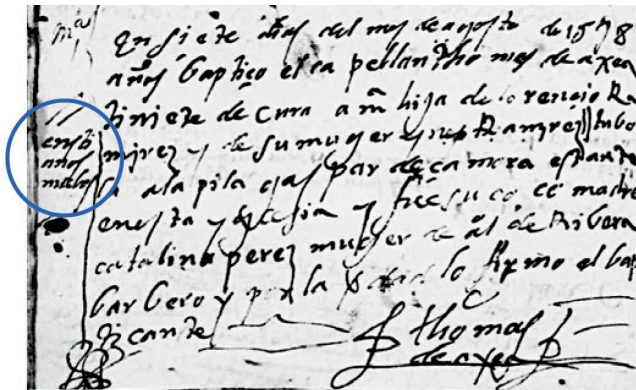 mª
En siete dias del mes de agosto de 1578
años baptiço el capellan tho mas de axea
tiniete de cura a mª hija de lorencio Ra
mirez y de su muger ynes Ramirez tubo
la a la pila gaspar de çamora estante
en esta yglesia y fue su co madre
catalina perez muger de al de Ribera
barbero y por la verdad lo firmo el bap
tizante
thomas
de axea
años